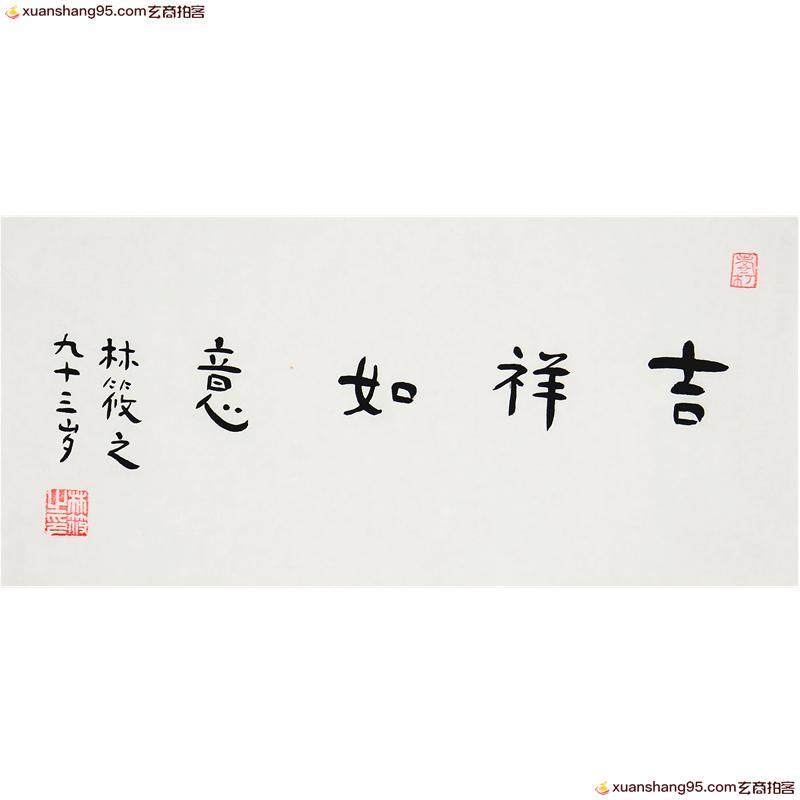 xuanshang95.com玄商拍客
吉祥如意
林筱之
九十三岁
xuanshang95.com玄商拍客